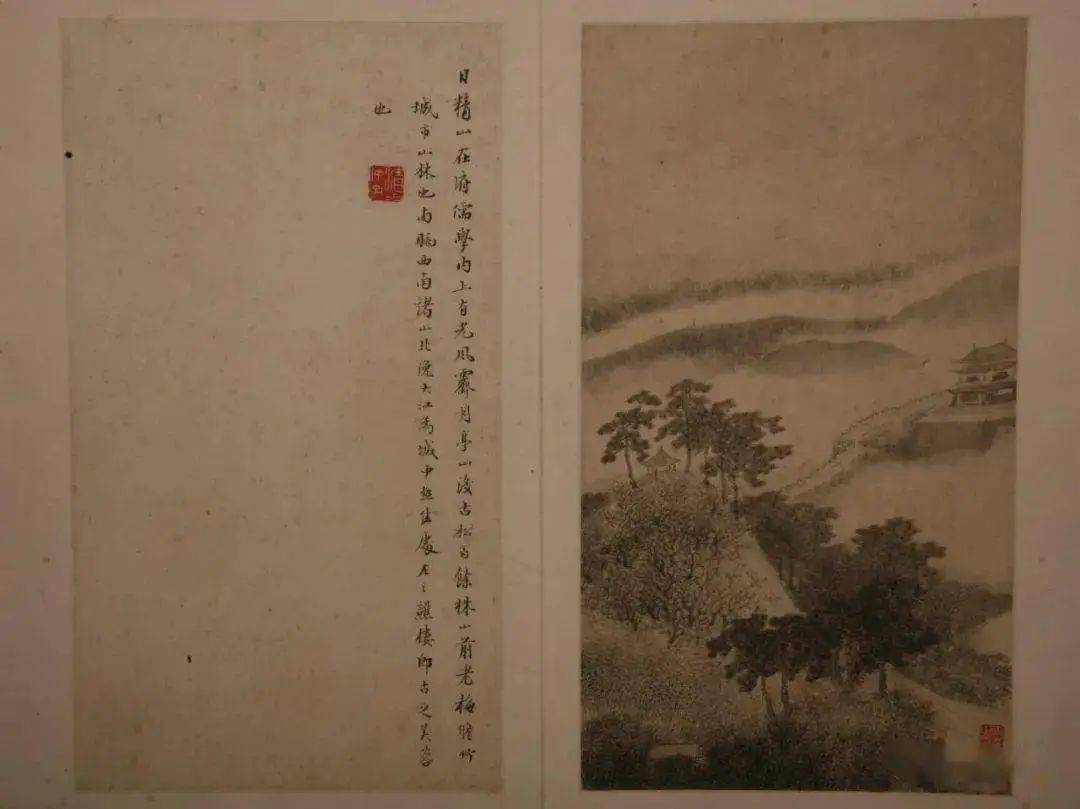 日精山在府儒學内上有光風霽月亭山後古松百餘株山前老梅脩竹
城市山林也南眺西南諸山北俛大江為城中絶佳處左之譙樓即古之芙蓉
也